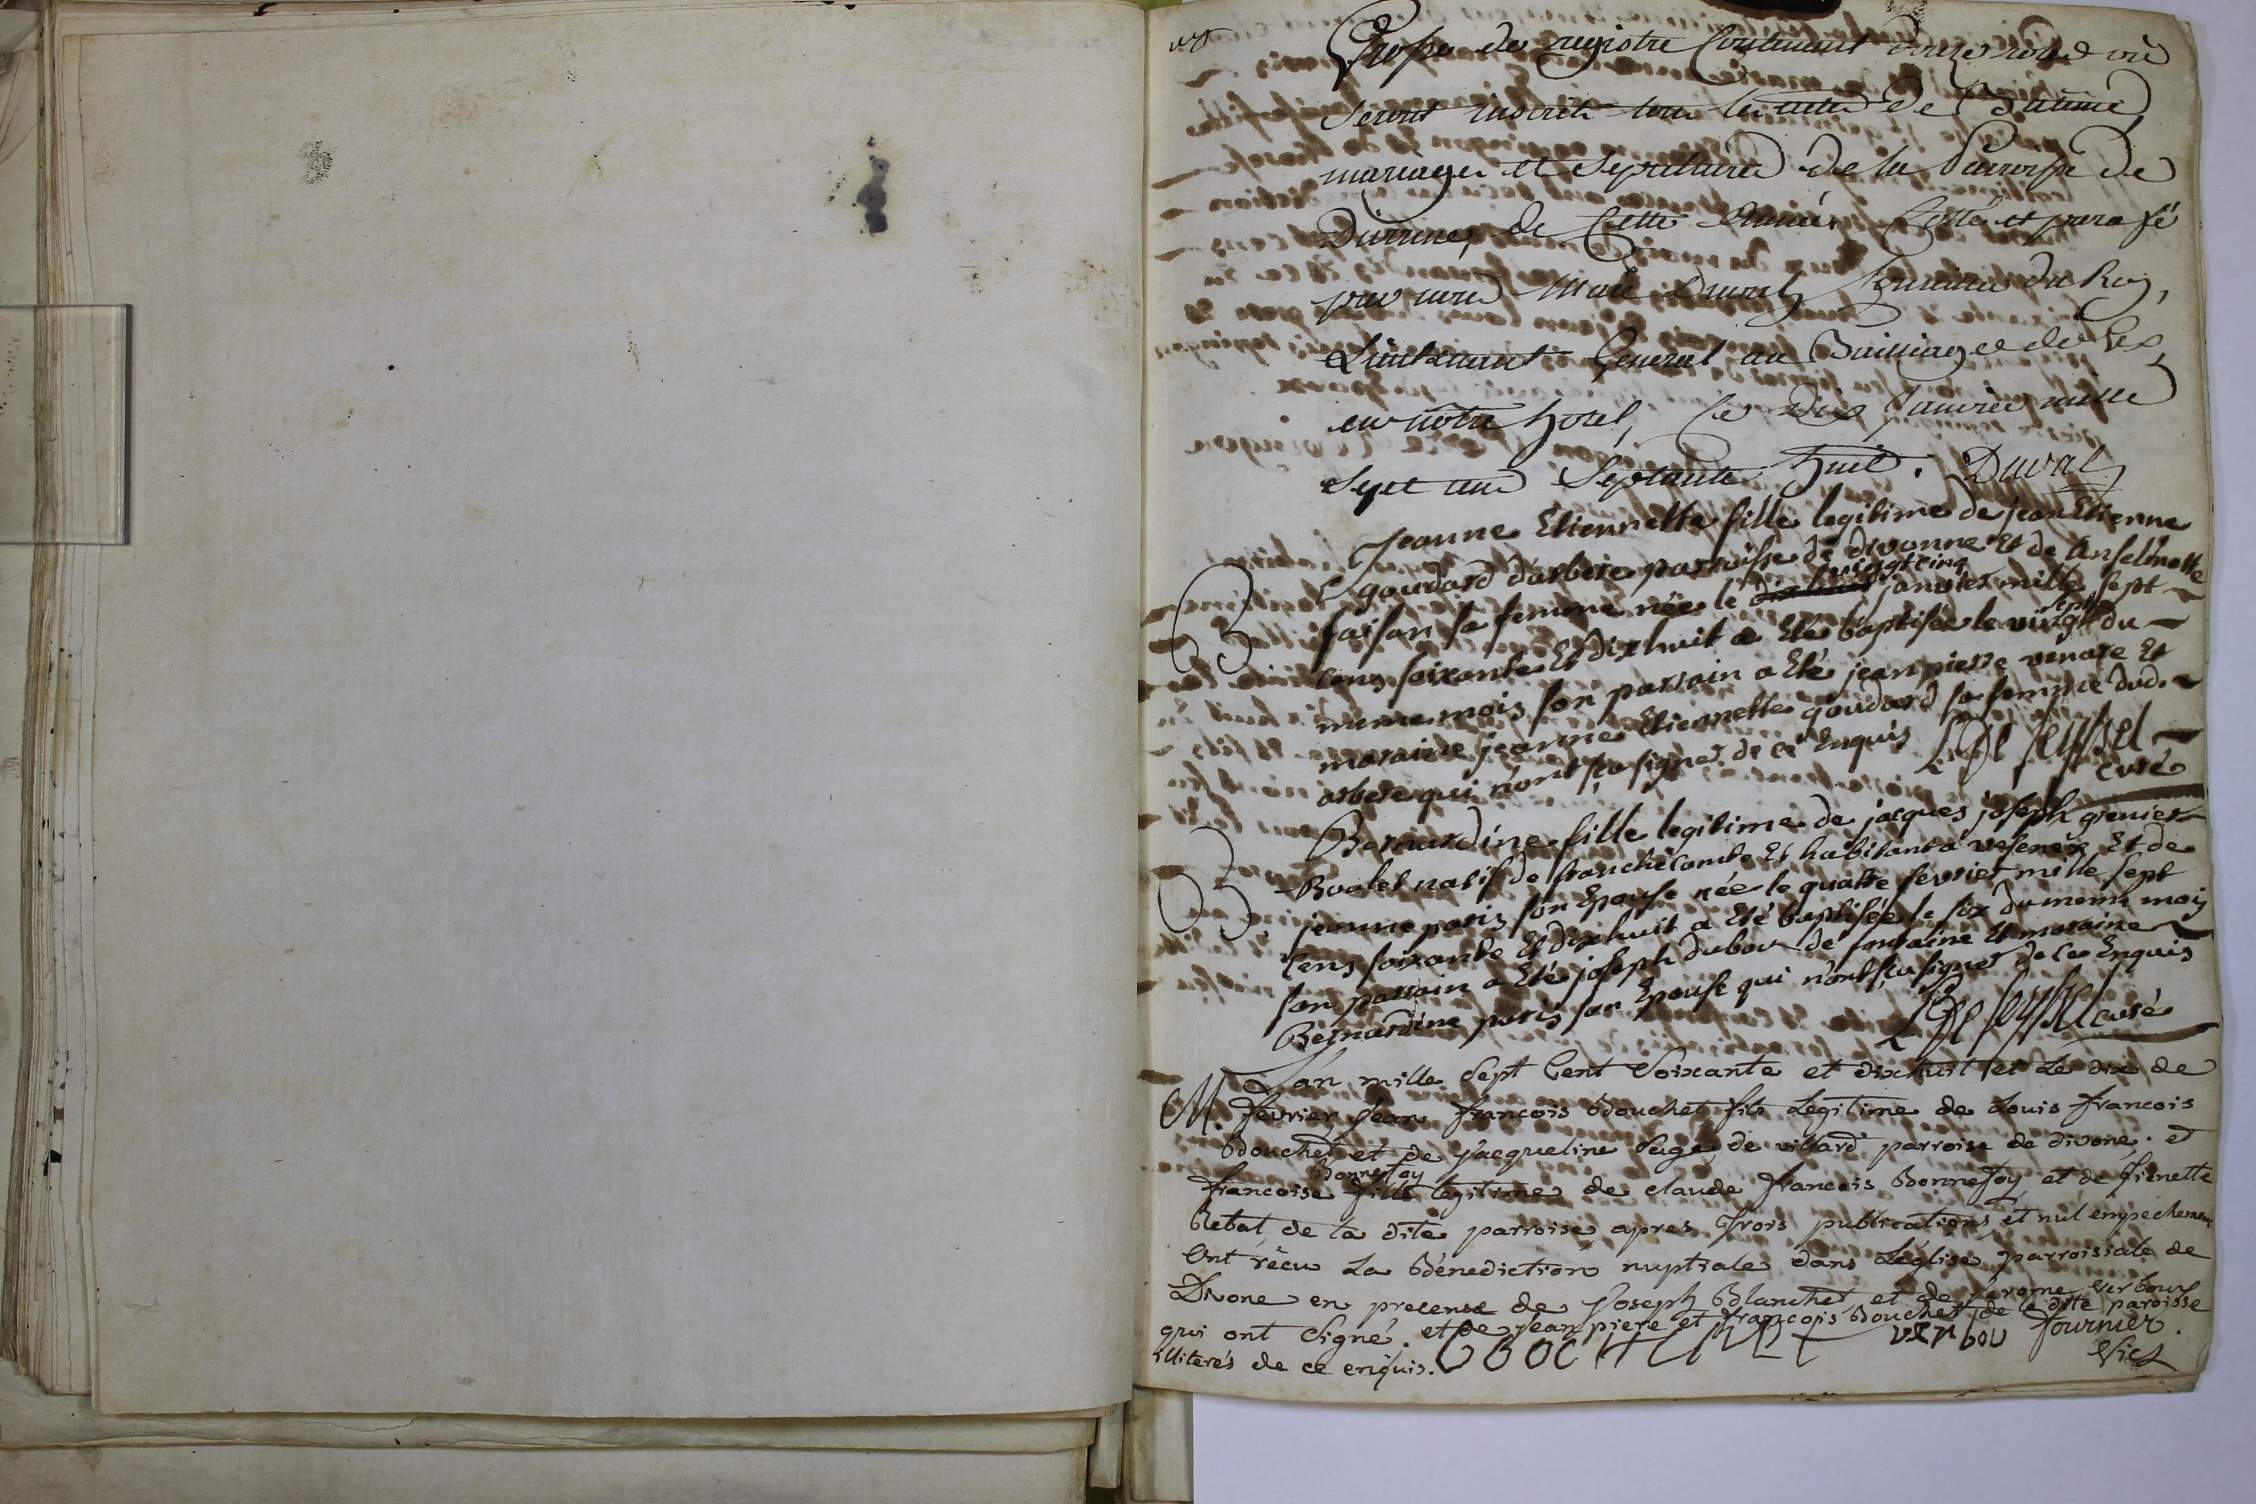 Grosse de registre Contenant douze rolles où
seront inscrits tous les actes de Batême,
mariages et sepultures de la Parroisse de
Divonne, de Cette Année, Cotté et parafé
par nous Marc Duval, Conseiller du Roy,
Lieutenant General au Bailliage de Gex,
en nôtre hotel, ce dix Janvier mille
sept cens septante huit. Duval
B
Jeanne Etiennette fille legitime de jean Etienne
goudard d'arbere parroisse de divonne Et de Anselmette
vingt cinq
faisan sa femme née le janvier mille sept
sept
cens soixante Et dixhuit a Eté baptisée le vingt du
meme mois son parrain a Eté jean pierre venare Et
maraine jeanne Etiennette goudard sa femme dud.
arbere qui n'ont sçu signer de ce Enquis L: De seyssel
curé
B
Bernardine fille legitime de jacques joseph grenier
Boolet natif de franche Comte Et habitant a vesenex Et de
jeanne paris son Epouse née le quatre fevrier mille sept
Cens soixante Et dixhuit a Eté baptisée le six du meme mois
son parrain a Eté joseph dubou de fontaine Et maraine
Bernardine paris son Epouse qui n'ont sçu signer de ce Enquis
L: De seyssel curé
M.
L'an mille Sept Cent Soixante et dixhuit et Le dix de
fevrier Jean François Bouchet fils Legitime de Louis François
Bouchet et de Jacqueline Sage de villard parroise de divone, et
Bonnefoy
Francoise fille legitime de claude francois Bonnefoy et de Fienette
Rebat de la dite parroise apres Trois publications et nul empechement
Ont reçu La Bénediction nuptiale dans L'église parroissiale de
Divone en presence de Joseph Blanchet et de Jerome Verboux
et de Jean piere et françois Bouchet de la dite paroisse
qui ont Signé.
illiterés de ce enquis. verbou Fournier
Vic.